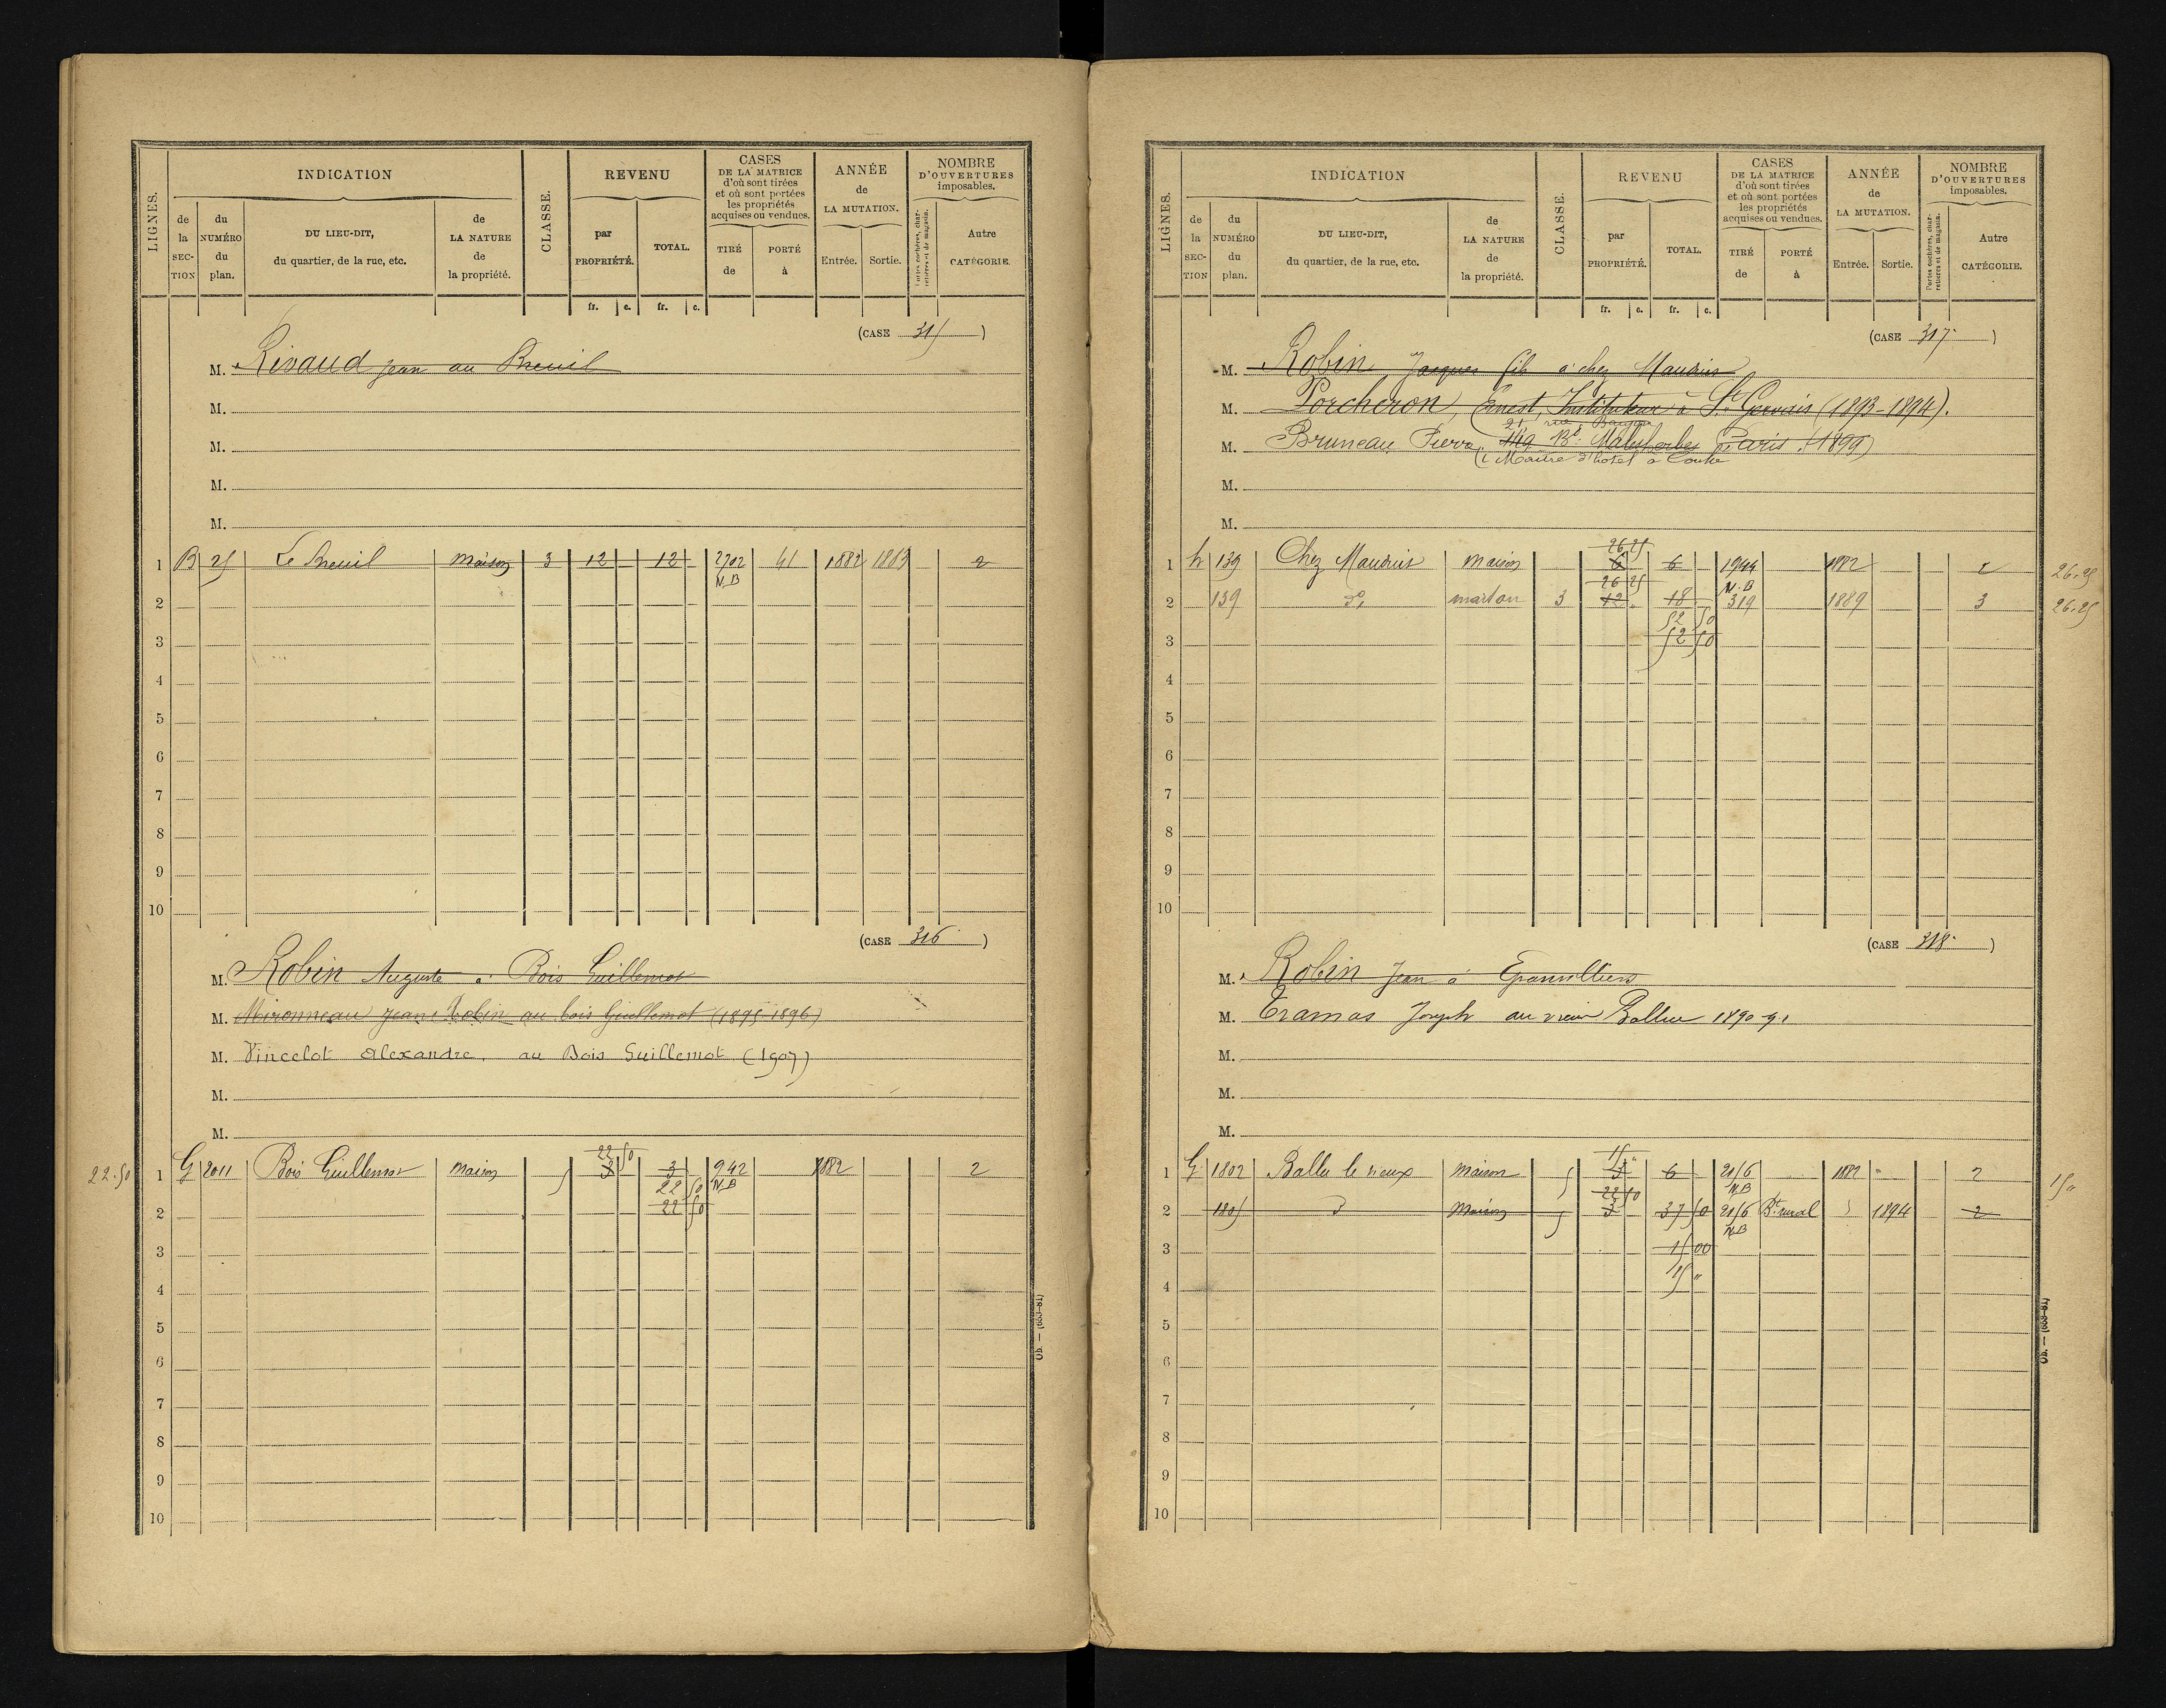 LIGNES.
INDICATION
de la SECTION
du NUMÉRO du plan.
DU LIEU-DIT, du quartier, de la rue, etc.
de LA NATURE de la propriété.
CLASSE.
REVENU
par PROPRIÉTÉ.
TOTAL.
fr. c. fr. c.
CASES DE LA MATRICE d'où sont tirées et où sont portées les propriétés acquises ou vendues.
TIRÉ de
PORTÉ à
ANNÉE de LA MUTATION.
Entrée. Sortie.
NOMBRE D'OUVERTURES imposables.
Portes cochères, charretières et de magasin.
Autre CATÉGORIE.
(CASE 315)
M. Rivaud Jean au Breuil
M.
M.
M.
M.
1 B 25 Le Breuil Maison 3 12 12 2702 41 1882 1883 2
N.B
2
3
4
5
6
7
8
9
10
(CASE 316)
M. Robin Auguste à Bois Guillemot
M. Mironneau Jean Robin au bois Guillemot (1895-1896)
M. Vincelot Alexandre. au Bois Guillemot (1907)
M.
M.
22 50
22.50 1 G 2011 Bois Guillemot Maison 5 3 3 942 1882 2
22 50 N.B
2 22 50
3
4
5
6
7
8
9
10
Ob. — (633-81)
LIGNES.
INDICATION
de la SECTION
du NUMÉRO du plan.
DU LIEU-DIT, du quartier, de la rue, etc.
de LA NATURE de la propriété.
CLASSE.
REVENU
par PROPRIÉTÉ.
TOTAL.
fr. c. fr. c.
CASES DE LA MATRICE d'où sont tirées et où sont portées les propriétés acquises ou vendues.
TIRÉ de
PORTÉ à
ANNÉE de LA MUTATION.
Entrée. Sortie.
NOMBRE D'OUVERTURES imposables.
Portes cochères, charretières et de magasin.
Autre CATÉGORIE.
(CASE 317)
M. Robin Jacques fils à chez Mauduis
M. Porcheron, Ernest, Instituteur à St. Gervais (1893-1894).
21, rue
M. Bruneau Pierre, 149 Bd. Malesherbes Paris. (1899)
(Maître d'hôtel à
M.
M.
26 25
1 h 139 Chez Mauduis Maison 6 6 1944 1882 2 26.25
26 25 N.B
2 139 d°. maison 3 12 18 319 1889 3 26.25
52 50
3 52 50
4
5
6
7
8
9
10
(CASE 318)
M. Robin Jean à Epanvilliers
M. Tramas Joseph au vieux Ballu 1890-91
M.
M.
M.
15 "
1 G 1802 Ballu le vieux Maison 5 3 6 2156 1882 2 15 "
22 50 N.B
2 1805 d° Maison 5 3 37 50 2156 Bt. rural 1894 2
N.B
3 15 00
4 15 "
5
6
7
8
9
10
Ob. — (633-81)